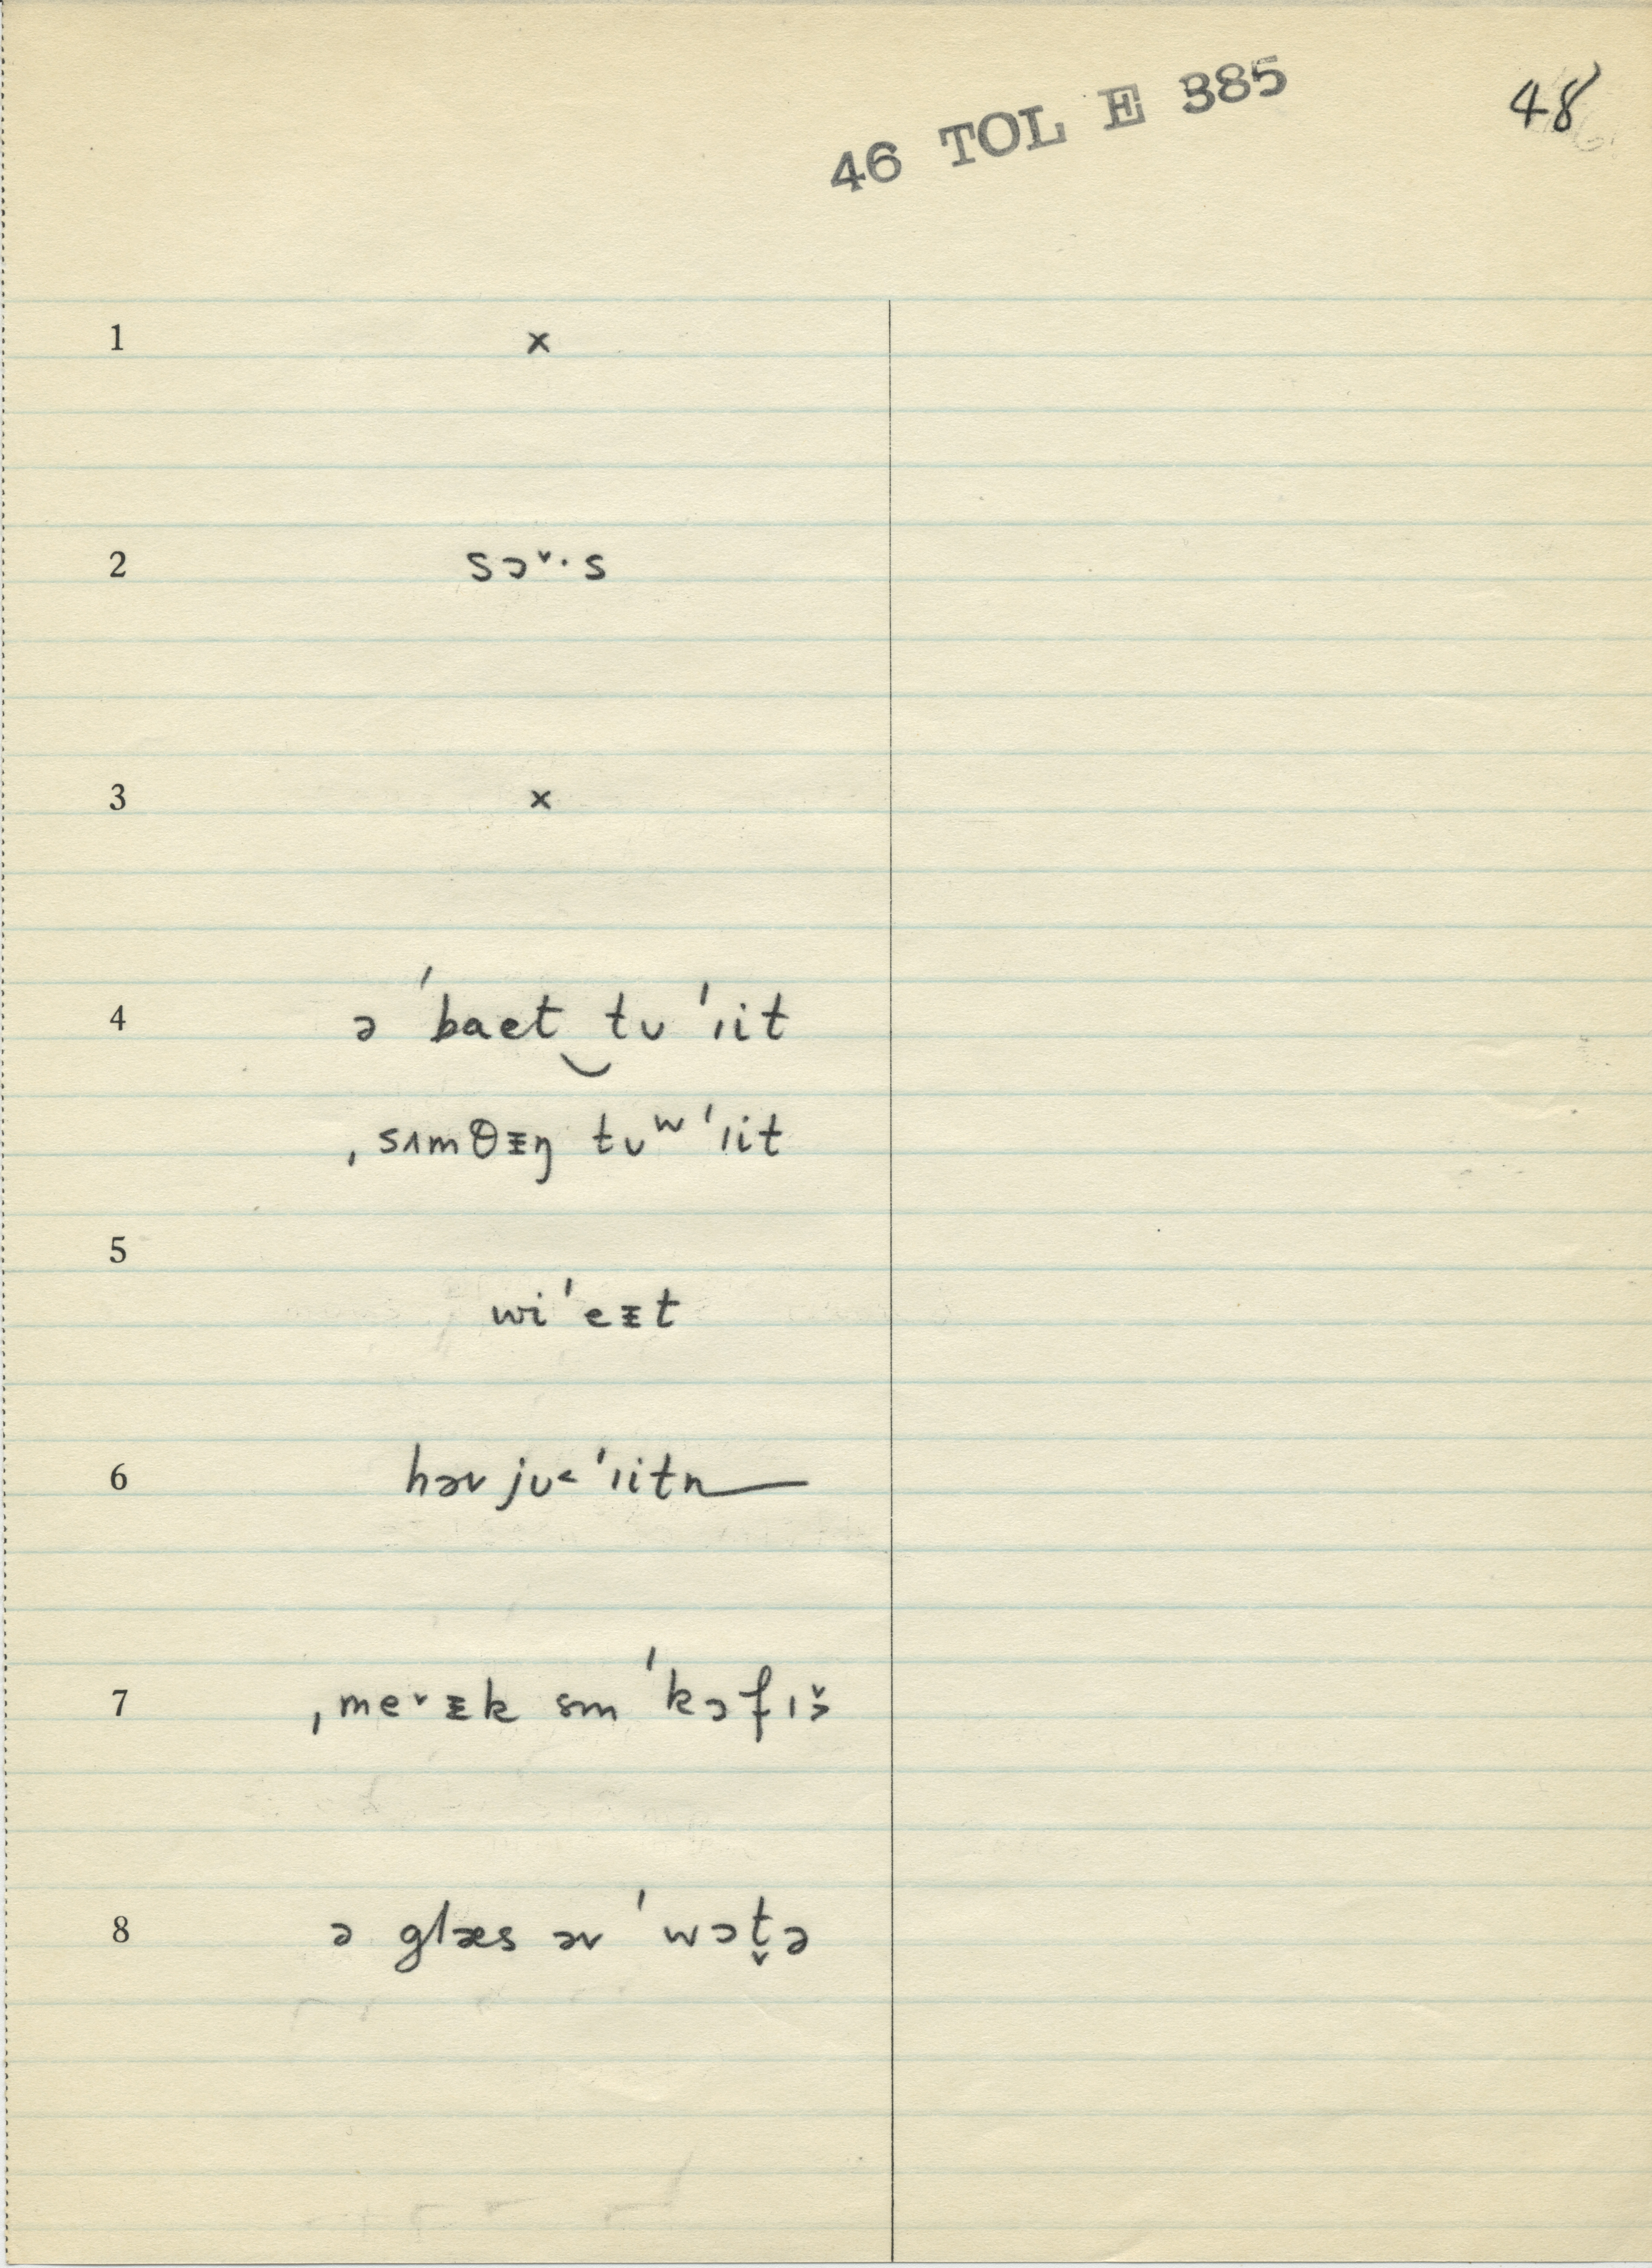 46 TOL E 385
48
1 x
2 sɔ˅·s
3 x
4 ə ˈbaet‿tᴜ ˈıit
ˌsʌmθᵻŋ tᴜʷ ˈıit
5
wiˈeᵻt
6 həv jᴜ˂ ˈıitn
7 ˌme˅ᵻk sm ˈkɔfıš
8 ə glæs əv ˈwɔt̬ə